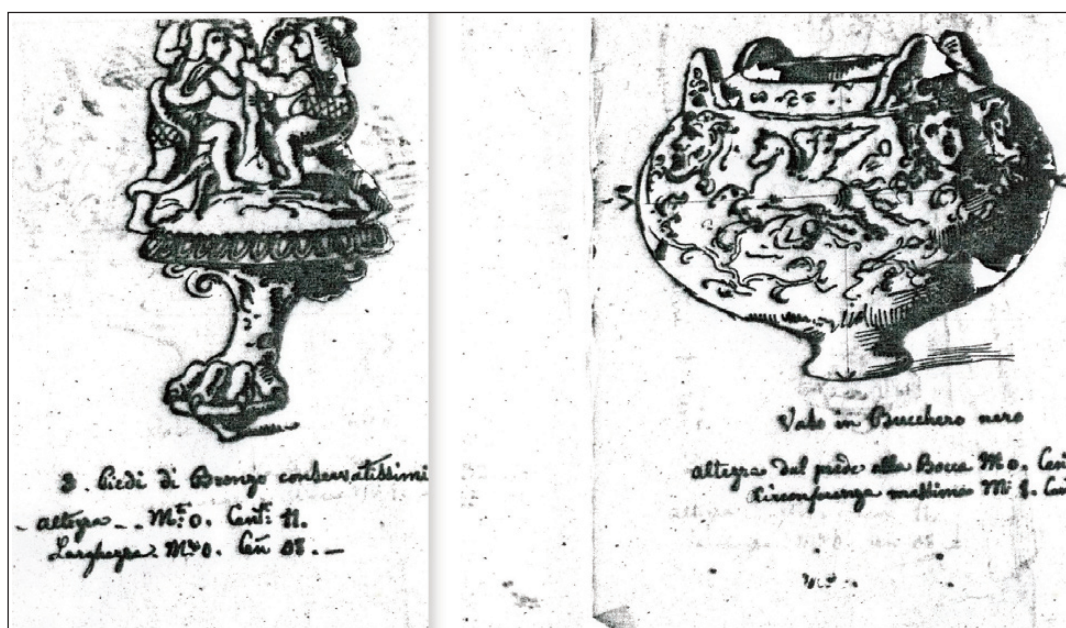 3. Piedi di Bronzo conservatissimi
- altezza - . M.º 0. Cent.i 11.
Larghezza. M.º 0. Cen 08. -
Vaso in Bucchero nero
altezza dal piede alla Bocca M 0. Cen
Circonferenza massima M. 1. Cen